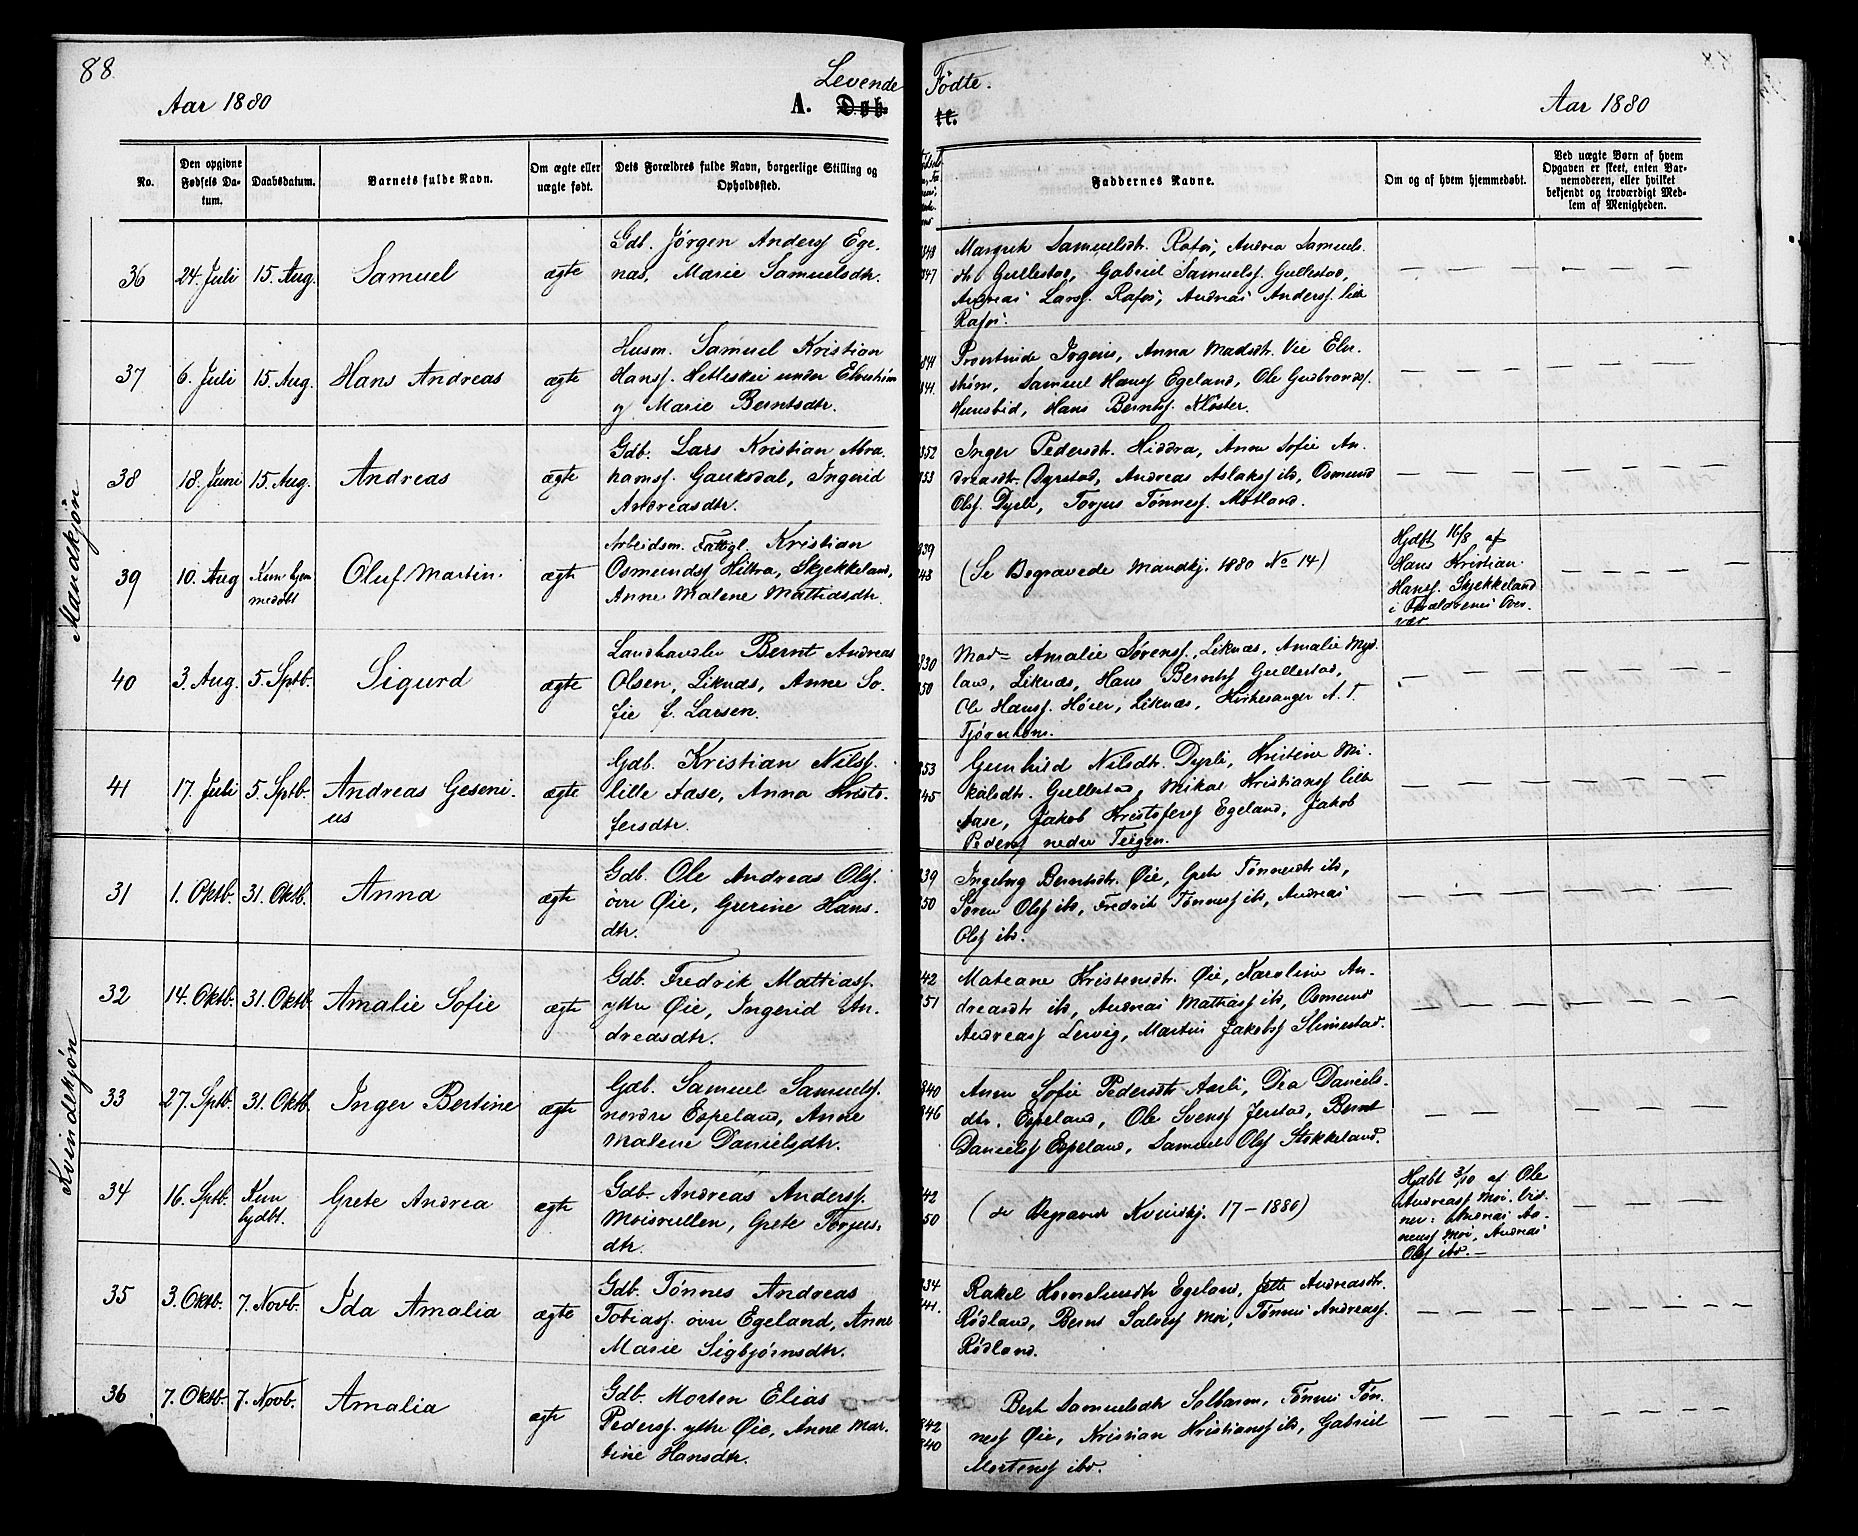 88.
Levende Födte.
Aar 1880
A. Døb- te.
Aar 1880
No.
Den opgivne Fødsels Datum.
Daabsdatum.
Barnets fulde Navn.
Om ægte eller uægte født.
Dets Forældres fulde Navn, borgerlige Stilling og Opholdssted.
Faddernes Navne.
Om og af hvem hjemmedøbt.
Ved uægte Børn af hvem Opgaven er skeet, enten Barnemoderen, eller hvilket bekjendt og troværdigt Medlem af Menigheden.
Mandkjøn
36 24. Juli 15. Aug. Samuel ægte
Gdb. Jørgen Anders Ege-
nas, Marie Samuelsdtr.
1848
1847
Samuelsdtr. Rafos, Andrea Samuels-
dtr Gullestad, Gabriel Samuels. Gullestad,
Andreas Lars. Rafos, Andreas Anders. lille
Rafos.
37 6. Juli 15. Aug. Hans Andreas ægte
Husm. Samuel Kristian
Hans. under
og Marie Berntsdtr.
1841
1841.
Anna Madsdtr. Vie
Samuel Hans Egeland, Ole Gudbrands.
Hans Bernts. Kloster.
38 18. Juni 15. Aug. Andreas ægte
Gdb. Lars Kristian Abra-
hams. Gauksdal, Ingerid
Andreasdtr.
1852
1853
Inger Pedersdtr. Hiddra, Anne Sofie An-
dreasdtr. Andreas Aslaks ibd, Osmund
Ols. Dyrli, Torjus Tønnes. Motland.
39 10. Aug Kun hjem-
medøbt Oluf Martin. ægte
Arbeidsm. Fattigl. Kristian
Osmunds Hidra, Skjekkeland,
Anne Malene Mattiasdtr.
1839
1843
(Se Begravede Mandkj. 1880 No 14)
Hjdbt 16/8 af
Hans Kristian
Hans. Skjekkeland
i Forældrenes Over-
vær
40 3. Aug. 5. Sptb. Sigurd ægte
Landhandler Bernt Andreas
Olsen, Liknæs, Anne So-
fie f. Larsen.
1830
1850
Mad= Amalie Sørens., Liknæs, Amalie Myd-
land, Liknæs, Hans Bernts Gullestad,
Ole Hans. Høier, Liknæs, Kirkesanger A. T.
Tjørnhom.
41 17. Juli 5. Sptb. Andreas Geseni-
us ægte
Gdb. Kristian Nils.
lille Aase, Anna Kristo-
fersdtr.
1853
1845
Gunhild Nilsdtr. Dyrli, Kristine Mi-
kalsdtr. Gullestad, Mikal Kristians lille
Aase, Jakob Kristofers Egeland, Jakob
Peders nedre Teigen.
Kvindekjøn
31 1. Oktb. 31. Oktb. Anna ægte
Gdb. Ole Andreas Ols.
øvre Øie, Gurine Hans-
dtr.
1839
1850
Ingeborg Berntsdtr. Øie, Grete Tønnesdtr ibd,
Søren Ols ibd, Fredrik Tønnes ibd, Andreas
Ols ibd.
32 14. Oktb. 31. Oktb Amalie Sofie ægte
Gdb. Fredrik Mattias.
ytre Øie, Ingerid An-
dreasdtr.
1842
1851
Mateane Kristensdtr. Øie, Karoline An-
dreasdtr ibd, Andreas Mathias ibd, Osmund
Andreas Lervig, Martin Jakobs Slimestad.
33 27. Sptb. 31. Oktb. Inger Bertine ægte
Gdb. Samuel Samuels.
nordre Espeland, Anne
Malene Danielsdtr.
1840
1846
Anne Sofie Pedersdtr Aarli, Dea Daniels-
dtr. Espeland, Ole Svens Jerstad, Bernt
Daniels Espeland, Samuel Ols Stokkeland.
34 16. Sptb. Kun
hjdbt. Grete Andrea ægte
Gdb. Andreas Anders.
Moisvellen, Grete Torjus-
dtr.
1842
1850
(se Begravede Kvindkj. 17 - 1880)
Hjdbt 3/10 af Ole
Andreas Moi. Vid-
ner: Andreas An-
ners Moi, Andreas
Ols ibd.
35 3. Oktb. 7. Novb. Ida Amalia ægte
Gdb. Tønnes Andreas
Tobias. øvre Egeland, Anne
Marie Sigbjørnsdtr.
1834
1841.
Rakel Kornelius dtr Egeland, Jette Andreasdtr.
Rødland, Bernt Salves Moi, Tønnes Andreas.
Rødland.
36 7. Oktb. 7. Novb. Amalia ægte
Gdb. Morten Elias
Peders. ytre Øie, Anne Mar-
tine Hansdtr.
1842
1840
Berte Samuelsdtr Solbarm, Tønnes Tøn-
nes Øie, Kristian Kristians ibd, Gabriel
Mortens ibd.